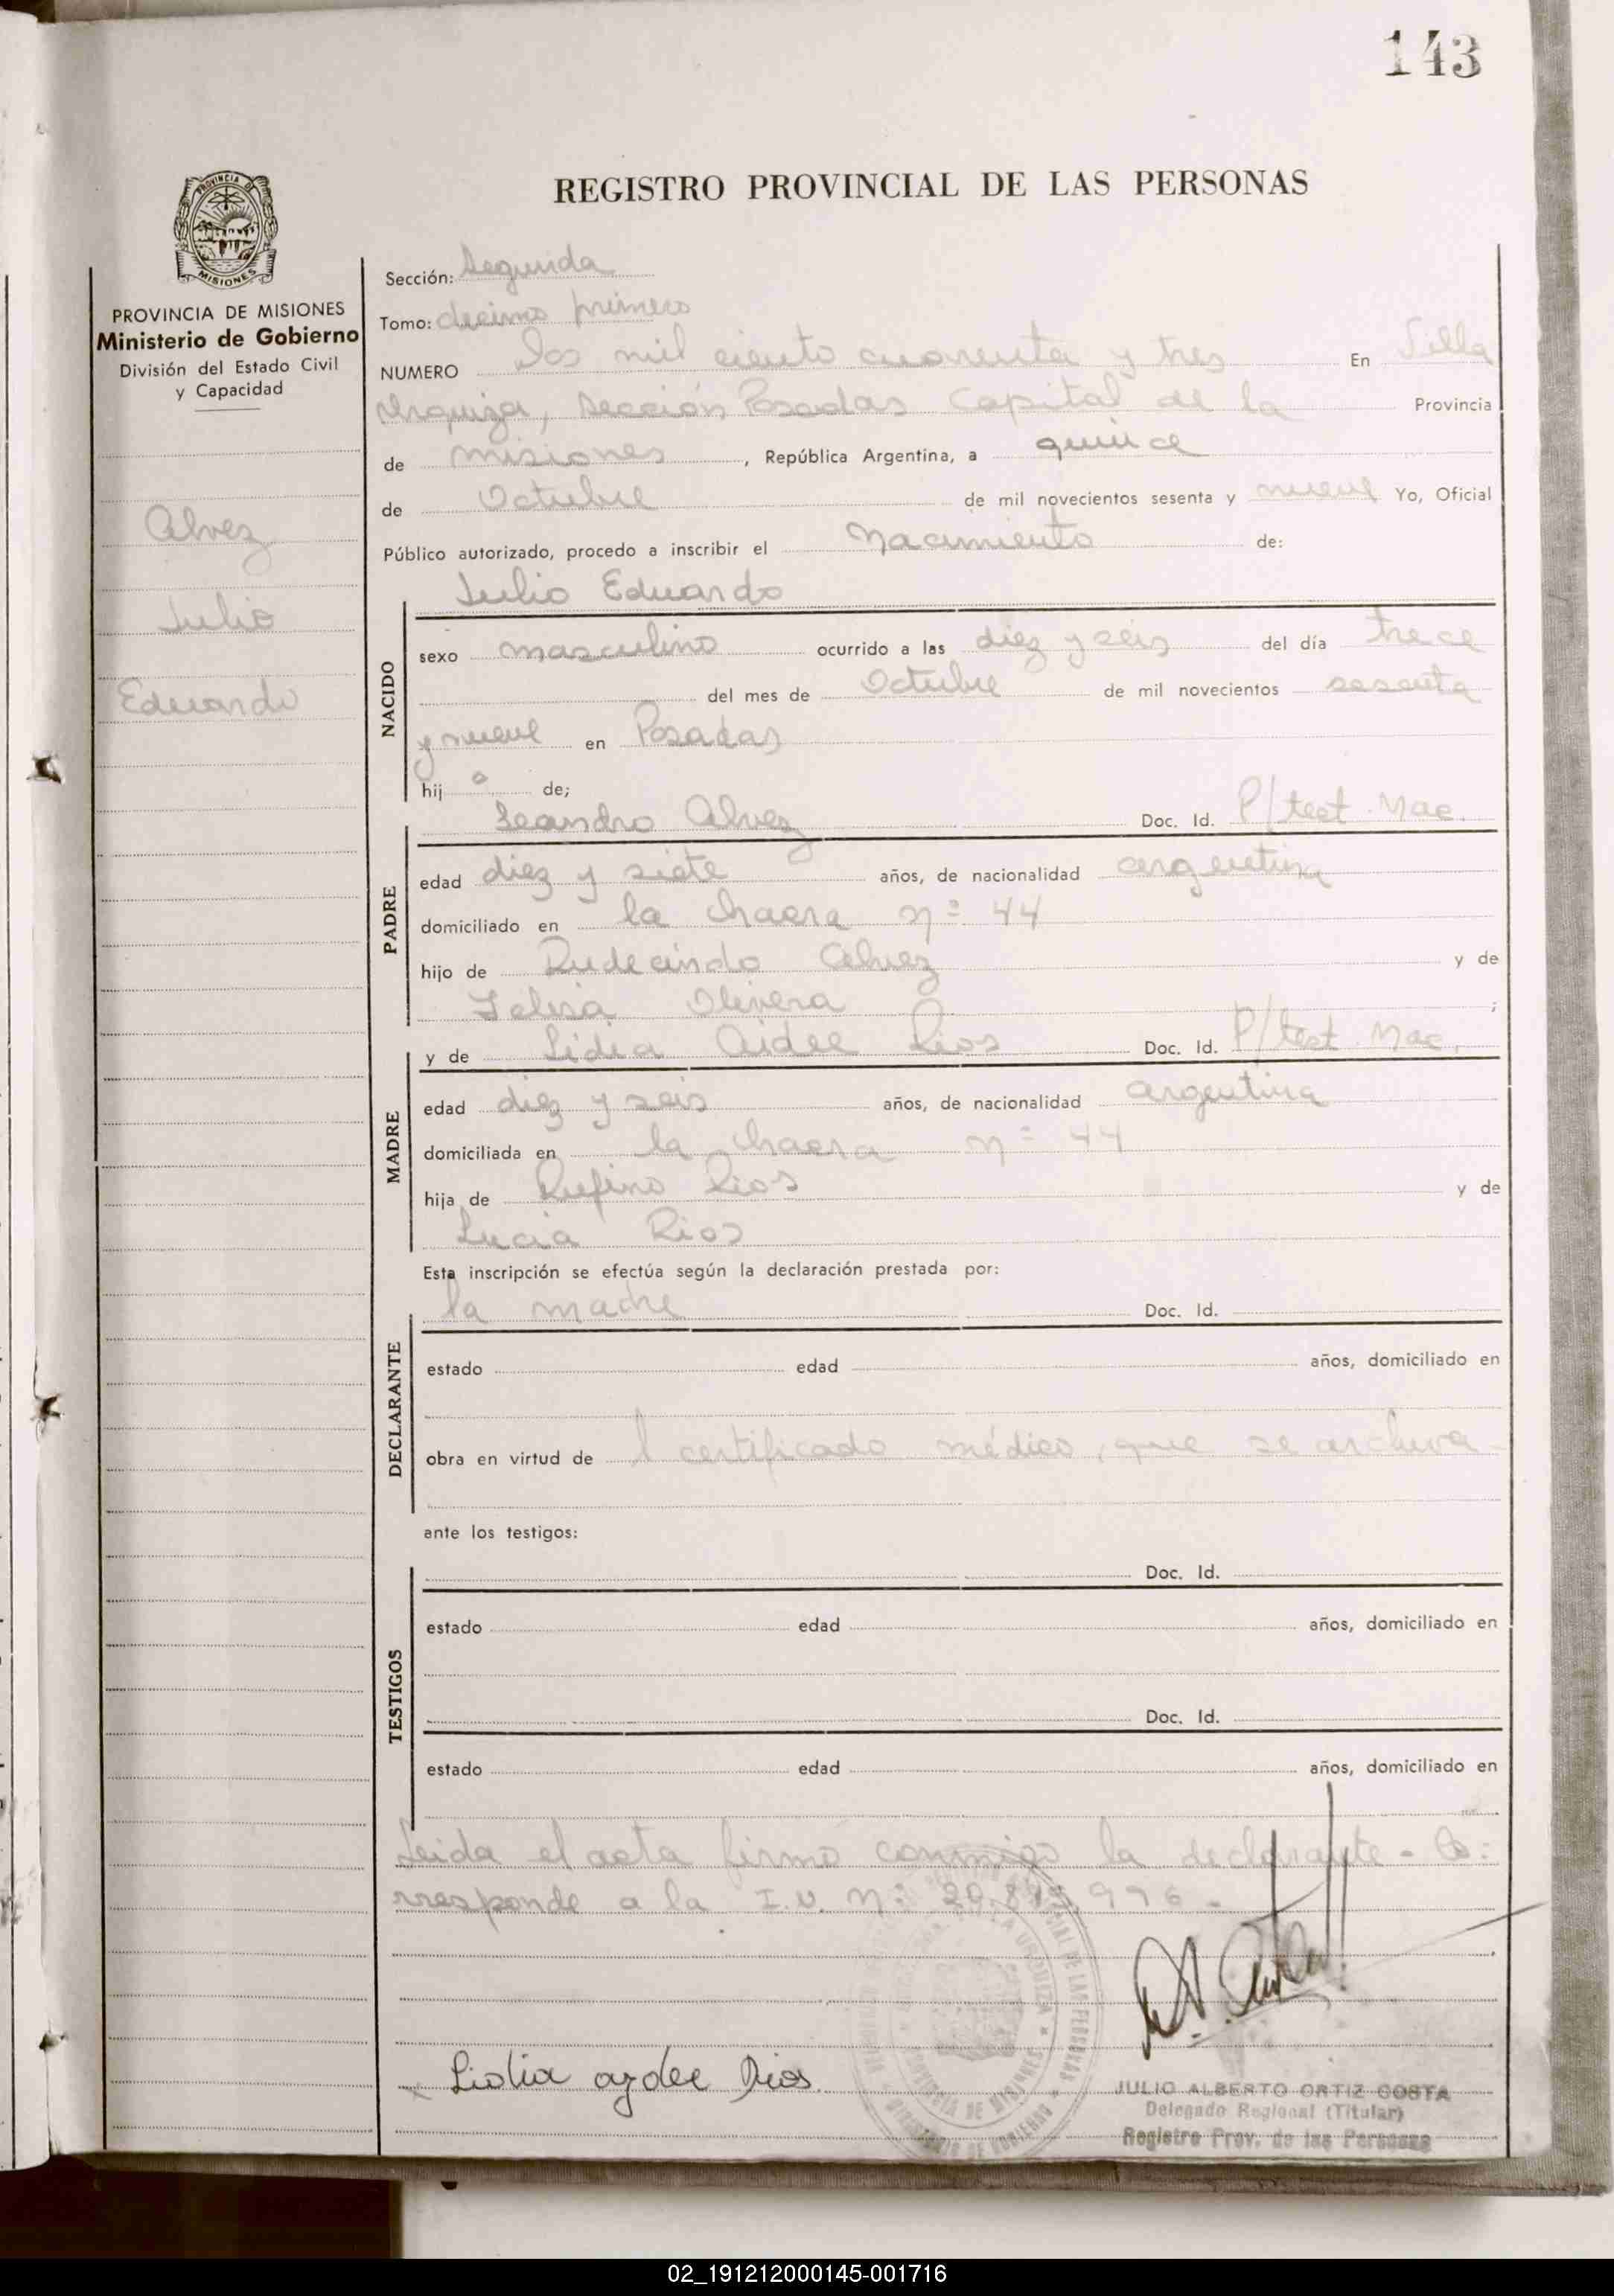 143
REGISTRO PROVINCIAL DE LAS PERSONAS
PROVINCIA DE MISIONES
PROVINCIA DE MISIONES
Ministerio de Gobierno
División del Estado Civil
y Capacidad
Alvez
Julio
Eduardo
Sección: Segunda
Tomo: decimo primero
NUMERO Dos mil ciento cuarenta y tres En Villa
Urquiza, sección Posadas Capital de la Provincia
de misiones, República Argentina, a quince
de Octubre de mil novecientos sesenta y nueve Yo, Oficial
Público autorizado, procedo a inscribir el Nacimiento de:
Julio Eduardo
NACIDO
sexo masculino ocurrido a las diez y seis del día trece
del mes de Octubre de mil novecientos sesenta
y nueve en Posadas
hijo de;
Leandro Alvez Doc. Id. P/test. Nac.
PADRE
edad diez y siete años, de nacionalidad argentina
domiciliado en la chacra nº 44
hijo de Rudecindo Alvez y de
Felisa Olivera ;
y de Lidia Aidee Rios Doc. Id. P/test. Nac.
MADRE
edad diez y seis años, de nacionalidad argentina
domiciliada en la chacra nº 44
hija de Rufino Rios y de
Lucia Rios
Esta inscripción se efectúa según la declaración prestada por:
la madre Doc. Id.
DECLARANTE
estado edad años, domiciliado en
obra en virtud de l certificado médico, que se archiva -
ante los testigos:
Doc. Id.
TESTIGOS
estado edad años, domiciliado en
Doc. Id.
estado edad años, domiciliado en
Leida el acta firmó conmigo la declarante - Co:
rresponde a la I.U. Nº: 996 -
Lidia aydee Rios
JULIO ALBERTO ORTIZ COSTA
Delegado Regional (Titular)
Registro Prov. de las Personas
02_191212000145-001716